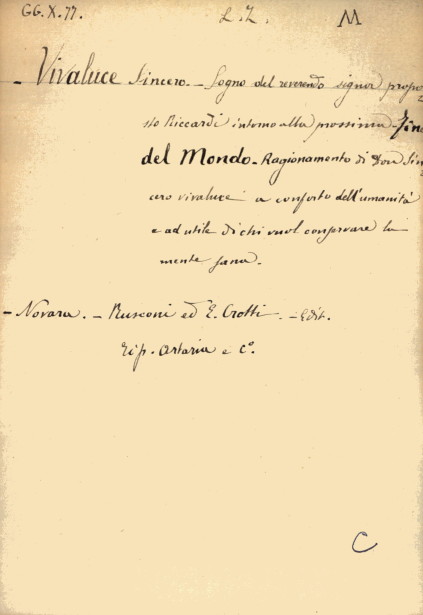 GG.X.77. L.Z. M
- Vivaluce Sincero. - Sogno del reverendo signor propo-
sto Riccardi intorno alla prossima - Fine
del Mondo - Ragionamento di Don Sin-
cero vivaluce a conforto dell'umanità
e ad utile di chi vuol conservare la
mente sana.
- Novara. - Rusconi ed E. Crotti. - Edit.
Tip. Artaria e C.º
C